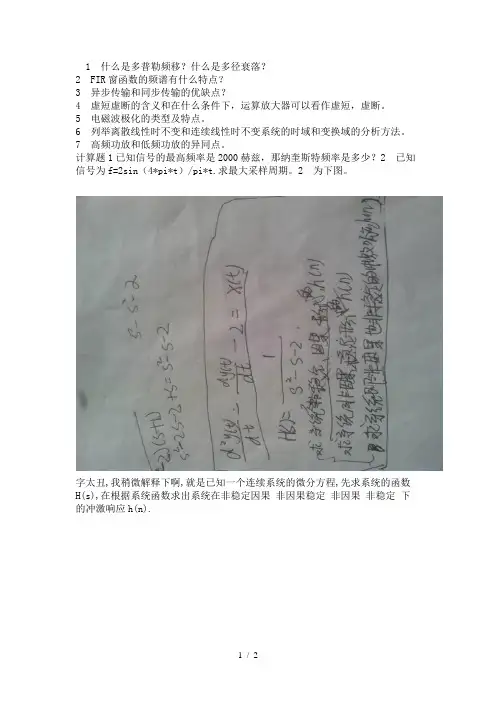 1 什么是多普勒频移？什么是多径衰落？
2 FIR窗函数的频谱有什么特点？
3 异步传输和同步传输的优缺点？
4 虚短虚断的含义和在什么条件下，运算放大器可以看作虚短，虚断。
5 电磁波极化的类型及特点。
6 列举离散线性时不变和连续线性时不变系统的时域和变换域的分析方法。
7 高频功放和低频功放的异同点。
计算题1已知信号的最高频率是2000赫兹，那纳奎斯特频率是多少？2 已知
信号为f=2sin（4*pi*t）/pi*t.求最大采样周期。2 为下图。
s-s²-2
2)(s+1)
s²-2s-2+s=s²-s-2
d²y(t)/dt - dy(t)/dt - 2 = x(t)
H(s)= 1/(s²-s-2).
求系统非稳定、因果 h(n)
求系统对非因果、稳定 h(n)
求系统既非因果也非稳定的冲激响应h(n)
字太丑,我稍微解释下啊,就是已知一个连续系统的微分方程,先求系统的函数
H(s),在根据系统函数求出系统在非稳定因果 非因果稳定 非因果 非稳定 下
的冲激响应h(n).
1 / 2